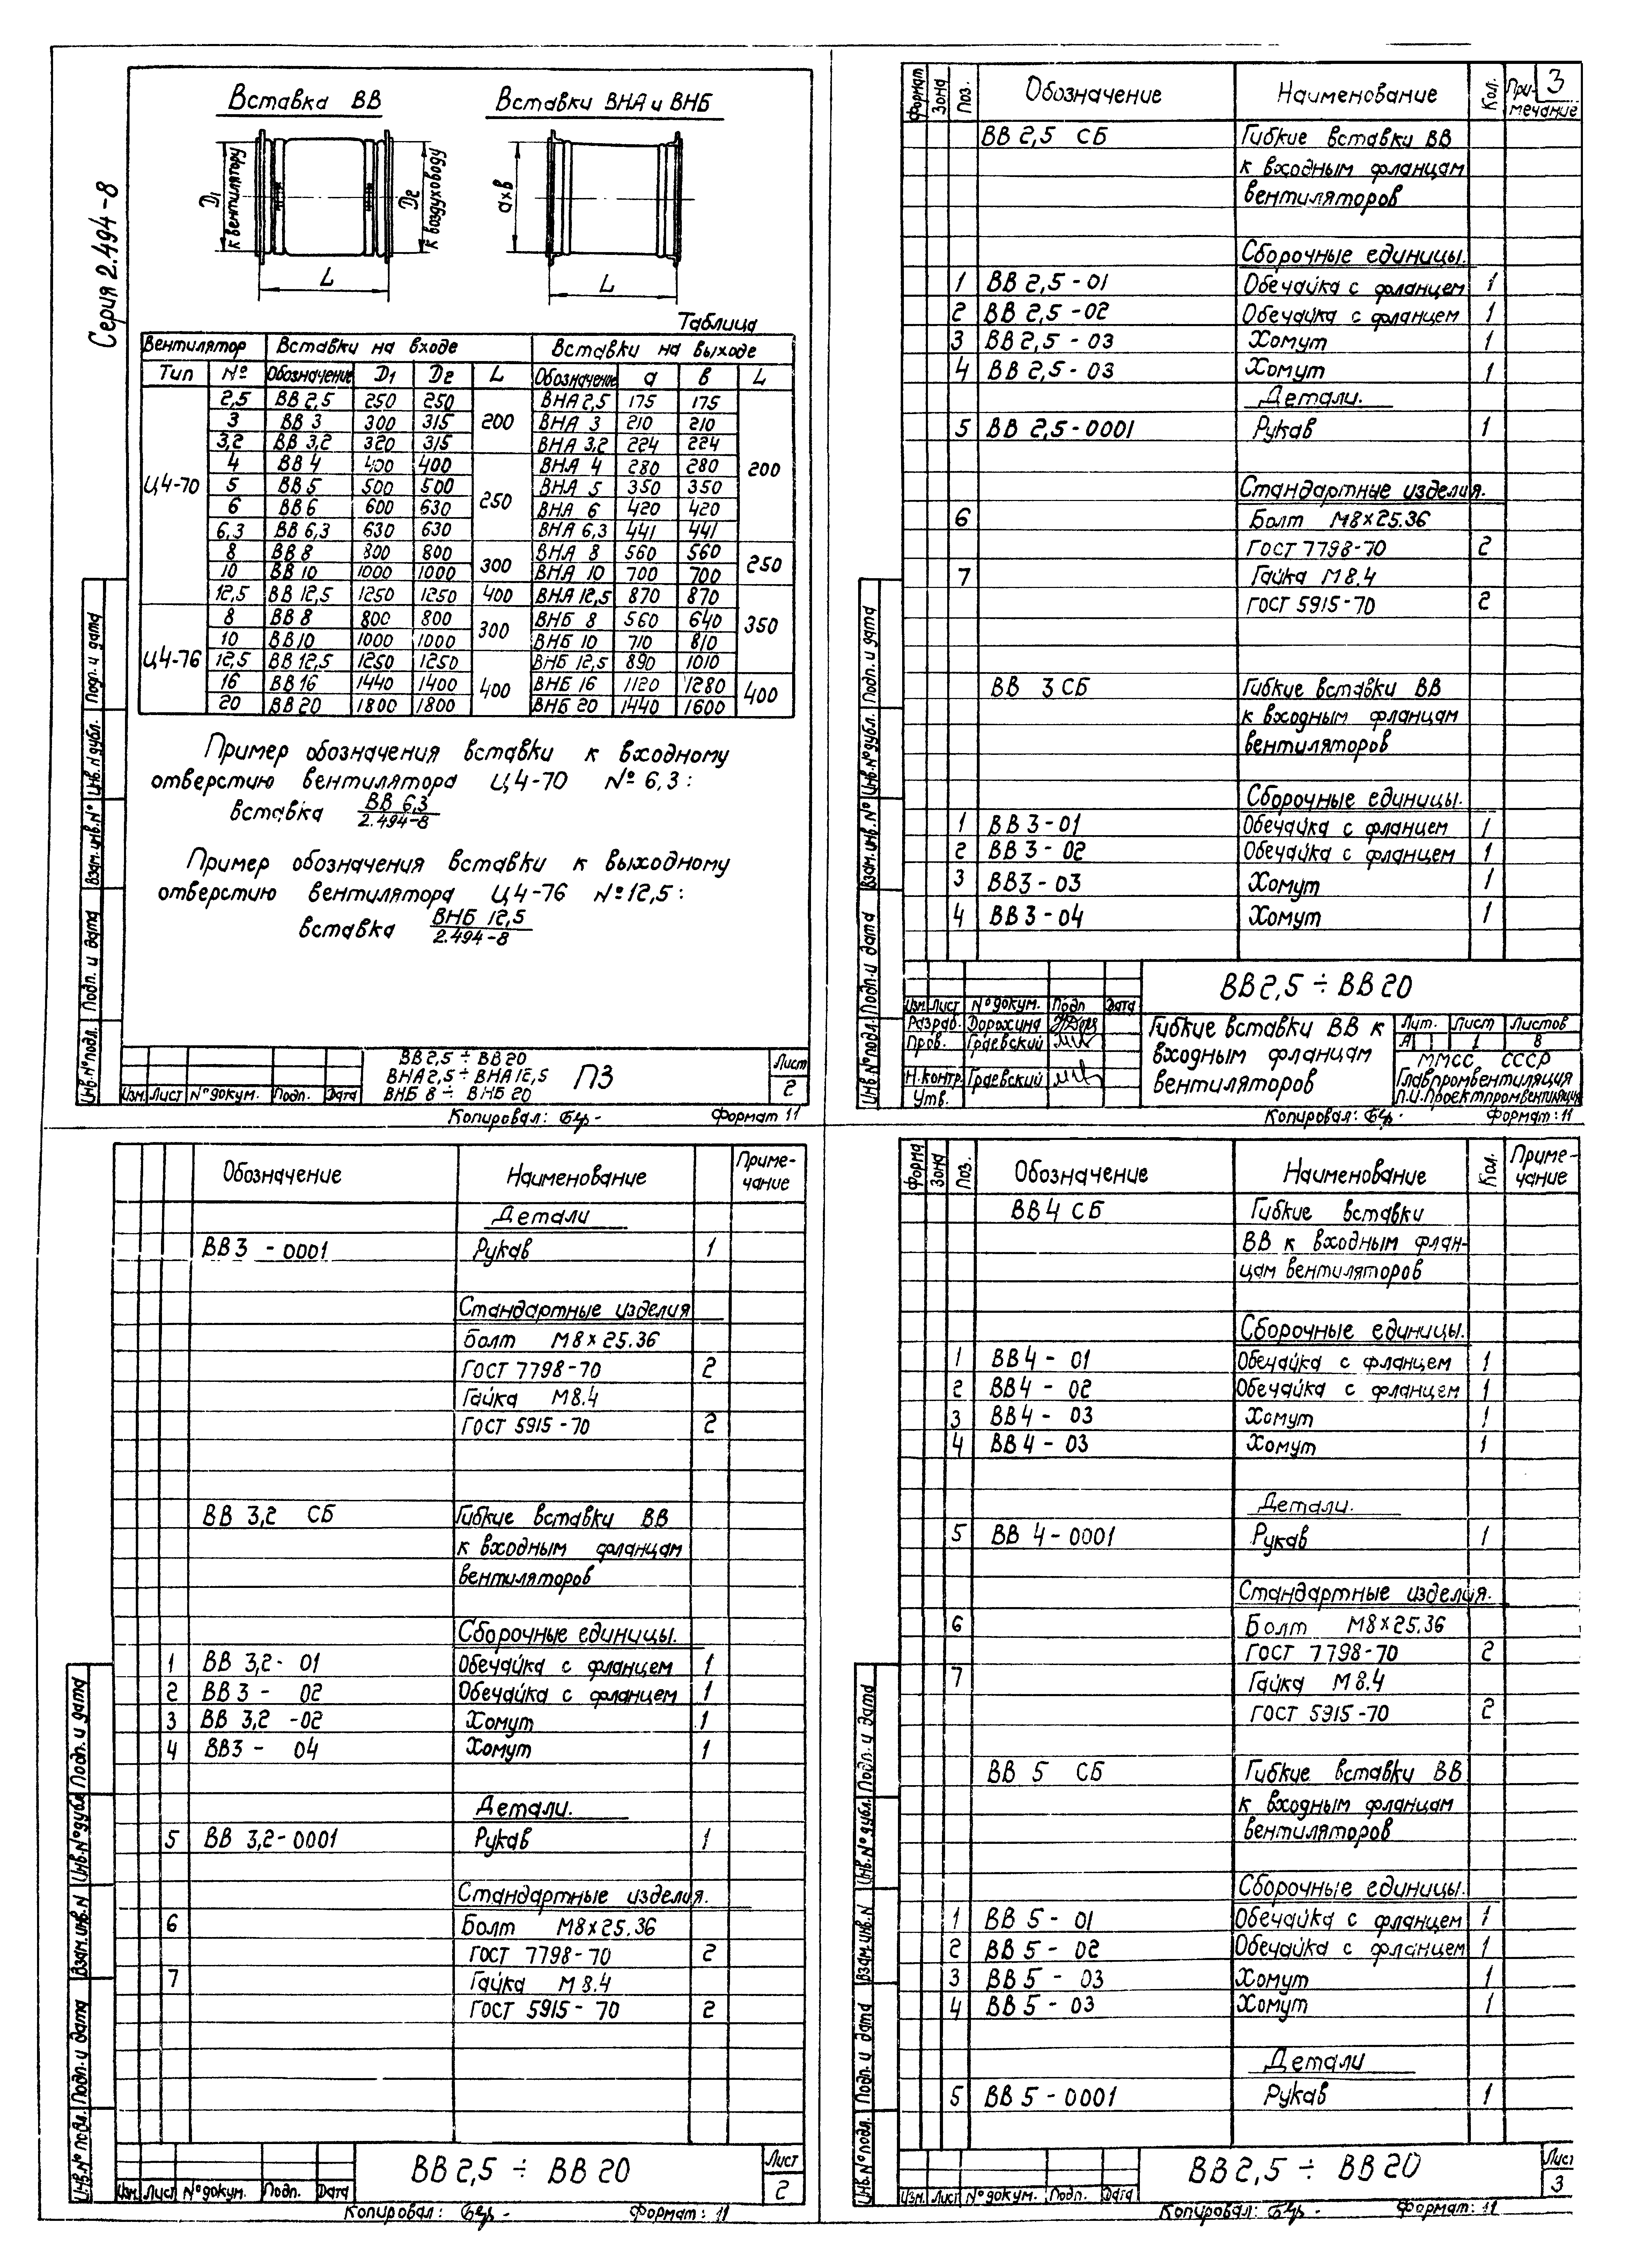 Серия 2.494-8
Вставка ВВ
Вставки ВНА и ВНБ
D1 к вентилятору
D2 к воздуховоду
L
ахв
L
Таблица
Вентилятор Вставки на входе Вставки на выходе
Тип № Обозначение D1 D2 L Обозначение а в L
Ц4-70 2,5 ВВ 2,5 250 250 200 ВНА 2,5 175 175 200
3 ВВ 3 300 315 ВНА 3 210 210
3,2 ВВ 3,2 320 315 ВНА 3,2 224 224
4 ВВ 4 400 400 250 ВНА 4 280 280
5 ВВ 5 500 500 ВНА 5 350 350
6 ВВ 6 600 630 ВНА 6 420 420
6,3 ВВ 6,3 630 630 ВНА 6,3 441 441
8 ВВ 8 800 800 300 ВНА 8 560 560 250
10 ВВ 10 1000 1000 ВНА 10 700 700
12,5 ВВ 12,5 1250 1250 400 ВНА 12,5 870 870 350
Ц4-76 8 ВВ 8 800 800 300 ВНБ 8 560 640
10 ВВ 10 1000 1000 ВНБ 10 710 810
12,5 ВВ 12,5 1250 1250 400 ВНБ 12,5 890 1010
16 ВВ 16 1440 1400 ВНБ 16 1120 1280 400
20 ВВ 20 1800 1800 ВНБ 20 1440 1600
Пример обозначения вставки к входному
отверстию вентилятора Ц4-70 № 6,3:
вставка ВВ 6,3
2.494-8
Пример обозначения вставки к выходному
отверстию вентилятора Ц4-76 № 12,5:
вставка ВНБ 12,5
2.494-8
Инв.№ подл. Подп. и дата Взам.инв.№ Инв.№ дубл. Подп. и дата
ВВ 2,5 ÷ ВВ 20
ВНА 2,5 ÷ ВНА 12,5
ВНБ 8 ÷ ВНБ 20
ПЗ
Лист
2
Изм. Лист № докум. Подп. Дата
Копировал:
Формат 11
Формат Зона Поз. Обозначение Наименование Кол. При-мечание
3
ВВ 2,5 СБ Гибкие вставки ВВ
к входным фланцам
вентиляторов
Сборочные единицы.
1 ВВ 2,5-01 Обечайка с фланцем 1
2 ВВ 2,5-02 Обечайка с фланцем 1
3 ВВ 2,5-03 Хомут 1
4 ВВ 2,5-03 Хомут 1
Детали.
5 ВВ 2,5-0001 Рукав 1
Стандартные изделия.
6 Болт М8×25.36
ГОСТ 7798-70 2
7 Гайка М8.4
ГОСТ 5915-70 2
ВВ 3 СБ Гибкие вставки ВВ
к входным фланцам
вентиляторов
Сборочные единицы.
1 ВВ 3-01 Обечайка с фланцем 1
2 ВВ 3-02 Обечайка с фланцем 1
3 ВВ3-03 Хомут 1
4 ВВ3-04 Хомут 1
Инв.№ подл. Подп. и дата Взам.инв.№ Инв.№ дубл. Подп. и дата
ВВ 2,5 ÷ ВВ 20
Изм. Лист № докум. Подп Дата
Разраб. Дорохина
Пров. Граевский
Н.контр. Граевский
Утв.
Гибкие вставки ВВ к
входным фланцам
вентиляторов
Лит. Лист Листов
А 1 8
ММСС СССР
Главпромвентиляция
П.И.Проектпромвентиляция
Копировал:
Формат: 11
Обозначение Наименование Приме-чание
Детали
ВВ3 -0001 Рукав 1
Стандартные изделия
Болт М8×25.36
ГОСТ 7798-70 2
Гайка М8.4
ГОСТ 5915-70 2
ВВ 3,2 СБ Гибкие вставки ВВ
к входным фланцам
вентиляторов
Сборочные единицы.
1 ВВ 3,2- 01 Обечайка с фланцем 1
2 ВВ 3 - 02 Обечайка с фланцем 1
3 ВВ 3,2 -02 Хомут 1
4 ВВ3 - 04 Хомут 1
Детали.
5 ВВ 3,2-0001 Рукав 1
Стандартные изделия.
6 Болт М8×25.36
ГОСТ 7798-70 2
7 Гайка М 8.4
ГОСТ 5915- 70 2
Инв.№ подл. Подп. и дата Взам.инв.N Инв.№ дубл Подп. и дата
ВВ 2,5 ÷ ВВ 20
Лист
2
Изм. Лист № докум. Подп. Дата
Копировал:
Формат: 11
Форма Зона Поз. Обозначение Наименование Кол. Приме-чание
ВВ4 СБ Гибкие вставки
ВВ к входным флан-
цам вентиляторов
Сборочные единицы.
1 ВВ4 - 01 Обечайка с фланцем 1
2 ВВ4 - 02 Обечайка с фланцем 1
3 ВВ4 - 03 Хомут 1
4 ВВ4 - 03 Хомут 1
Детали.
5 ВВ 4-0001 Рукав 1
Стандартные изделия.
6 Болт М8×25.36
ГОСТ 7798-70 2
7 Гайка М8.4
ГОСТ 5915-70 2
ВВ 5 СБ Гибкие вставки ВВ
к входным фланцам
вентиляторов
Сборочные единицы.
1 ВВ 5 - 01 Обечайка с фланцем 1
2 ВВ 5 - 02 Обечайка с фланцем 1
3 ВВ 5 - 03 Хомут 1
4 ВВ 5 - 03 Хомут 1
Детали
5 ВВ 5 -0001 Рукав 1
Инв.№ подл. Подп. и дата Взам.инв.N Инв.№ дубл. Подп. и дата
ВВ 2,5 ÷ ВВ 20
Лист
3
Изм. Лист № докум. Подп. Дата
Копировал:
Формат: 11